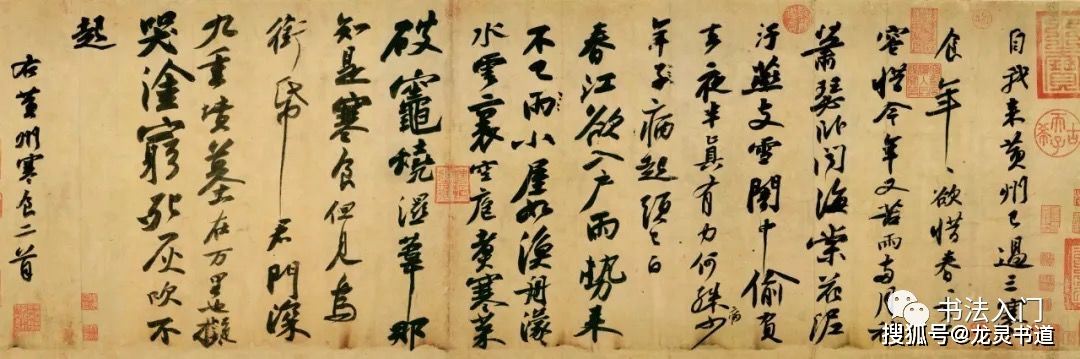 自我来黄州已過三寒
食年〻欲惜春〻
容惜今年又苦雨兩月秋
蕭瑟卧聞海棠花泥
汙燕支雪闇中偷負
去夜半真有力何殊少
年子病起頭已白
春江欲入户雨勢来
不已雨小屋如漁舟濛〻
水雲裏空庖煮寒菜
破竈燒濕葦那
知是寒食但見烏
銜帋君門深
九重墳墓在万里也擬
哭塗窮死灰吹不
起
右黄州寒食二首
古希天子
书法入门
搜狐号@龙灵书道